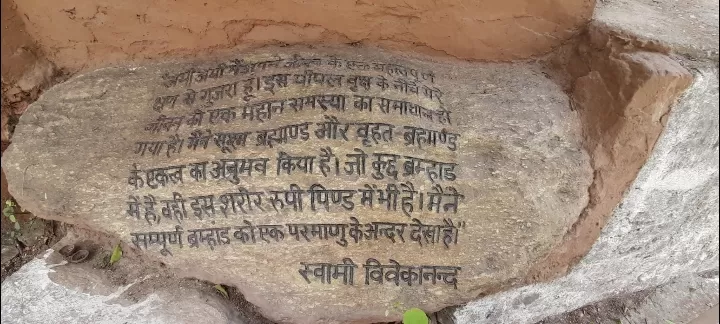 अभी अभी मैं अपने जीवन के एक महत्वपूर्ण
क्षण से गुजरा हूँ। इस पीपल वृक्ष के नीचे मेरे
जीवन की एक महान समस्या का समाधान हो
गया है। मैंने सूक्ष्म ब्रह्माण्ड और वृहत ब्रह्माण्ड
के एकत्व का अनुभव किया है। जो कुछ ब्रम्हाड
में है, वही इस शरीर रुपी पिण्ड में भी है। मैने
सम्पूर्ण ब्रम्हाड को एक परमाणु के अन्दर देखा है।"
स्वामी विवेकानन्द